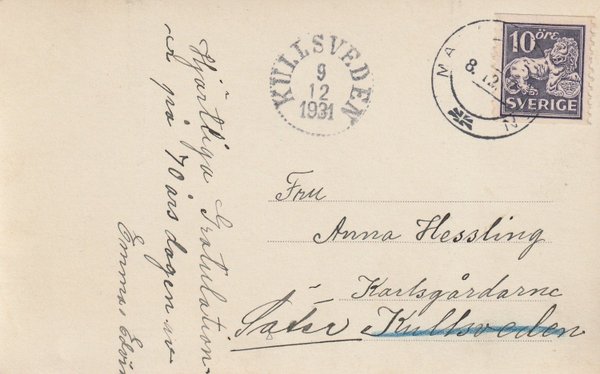 Hjärtliga Gratulation
er på 70 års dagen av
Emma, Edvin
KULLSVEDEN
9
12
1931
MA
8.12
N
10 ÖRE
SVERIGE
Fru
Anna Hessling
Karlsgårdarne
Säter Kullsveden